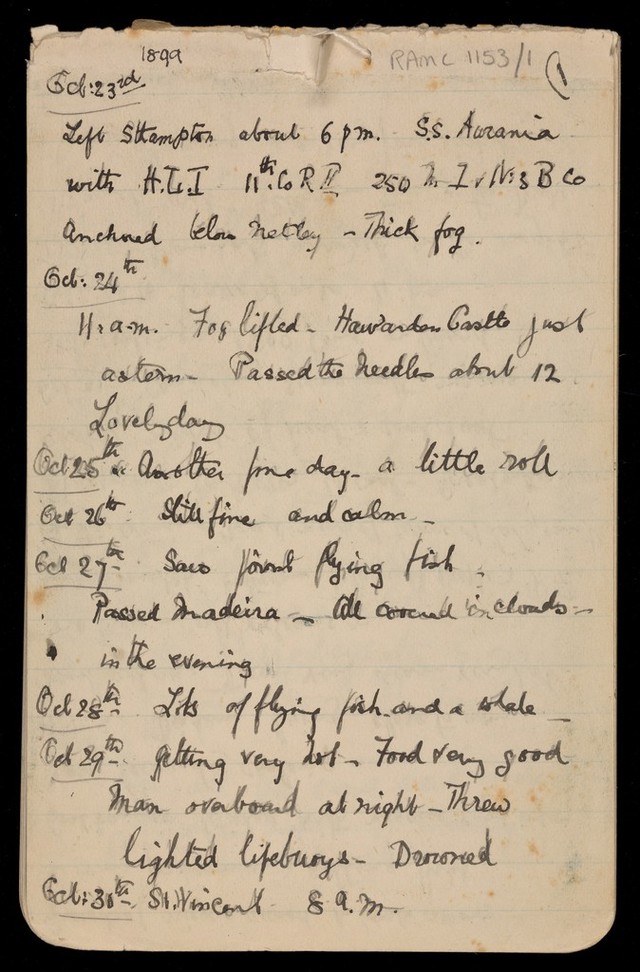 1899
RAMC 1153/1
1
Oct: 23rd
Left S'hampton about 6 p.m. S.S. Aurania
with H.L.I 11th Co R.E 250 M I No 3 B Co
Anchored below Netley - Thick fog.
Oct: 24th
11. a.m. Fog lifted - Hawarden Castle just
astern - Passed the Needles about 12
Lovely day
Oct 25th Another fine day - a little roll
Oct 26th Still fine and calm -
Oct 27th Saw first flying fish.
Passed Madeira - All covered in clouds -
in the evening
Oct 28th Lots of flying fish and a whale -
Oct 29th getting very hot - Food very good
Man overboard at night - Threw
lighted lifebuoys - Drowned
Oct: 30th St. Vincent 8 a.m.